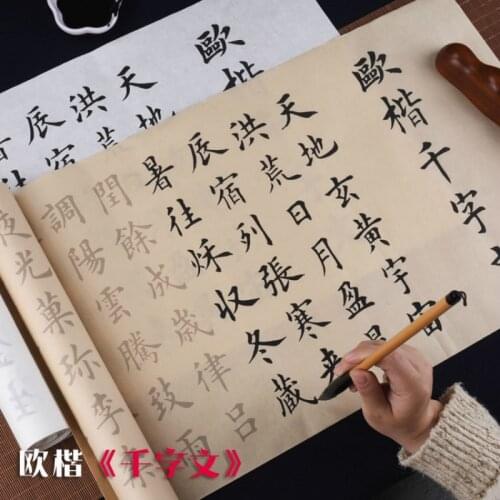 歐楷
天地
洪
辰宿
歐楷千字
天地玄黃宇宙
洪荒日月盈
辰宿列張寒來
暑往秋收冬藏
閏餘成歲律呂
調陽雲騰致雨
夜光菓珍李柰
欧楷《千字文》